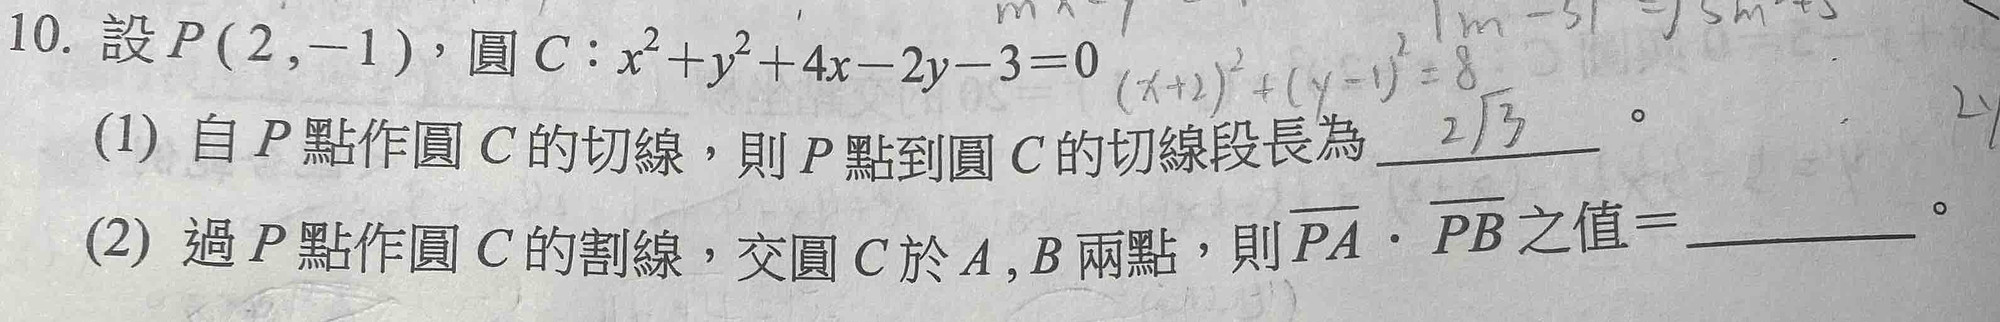 10. 設 P(2,-1)，圓 C：x²+y²+4x-2y-3=0
(x+2)²+(y-1)²=8
(1) 自 P 點作圓 C 的切線，則 P 點到圓 C 的切線段長為 2√3 。
(2) 過 P 點作圓 C 的割線，交圓 C 於 A , B 兩點，則 P̅A̅ · P̅B̅ 之值=________。